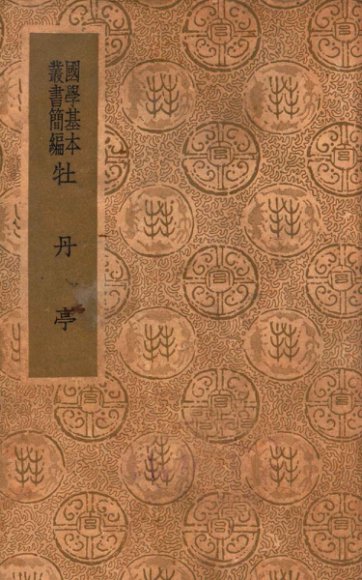 國學基本
叢書簡編
牡丹亭